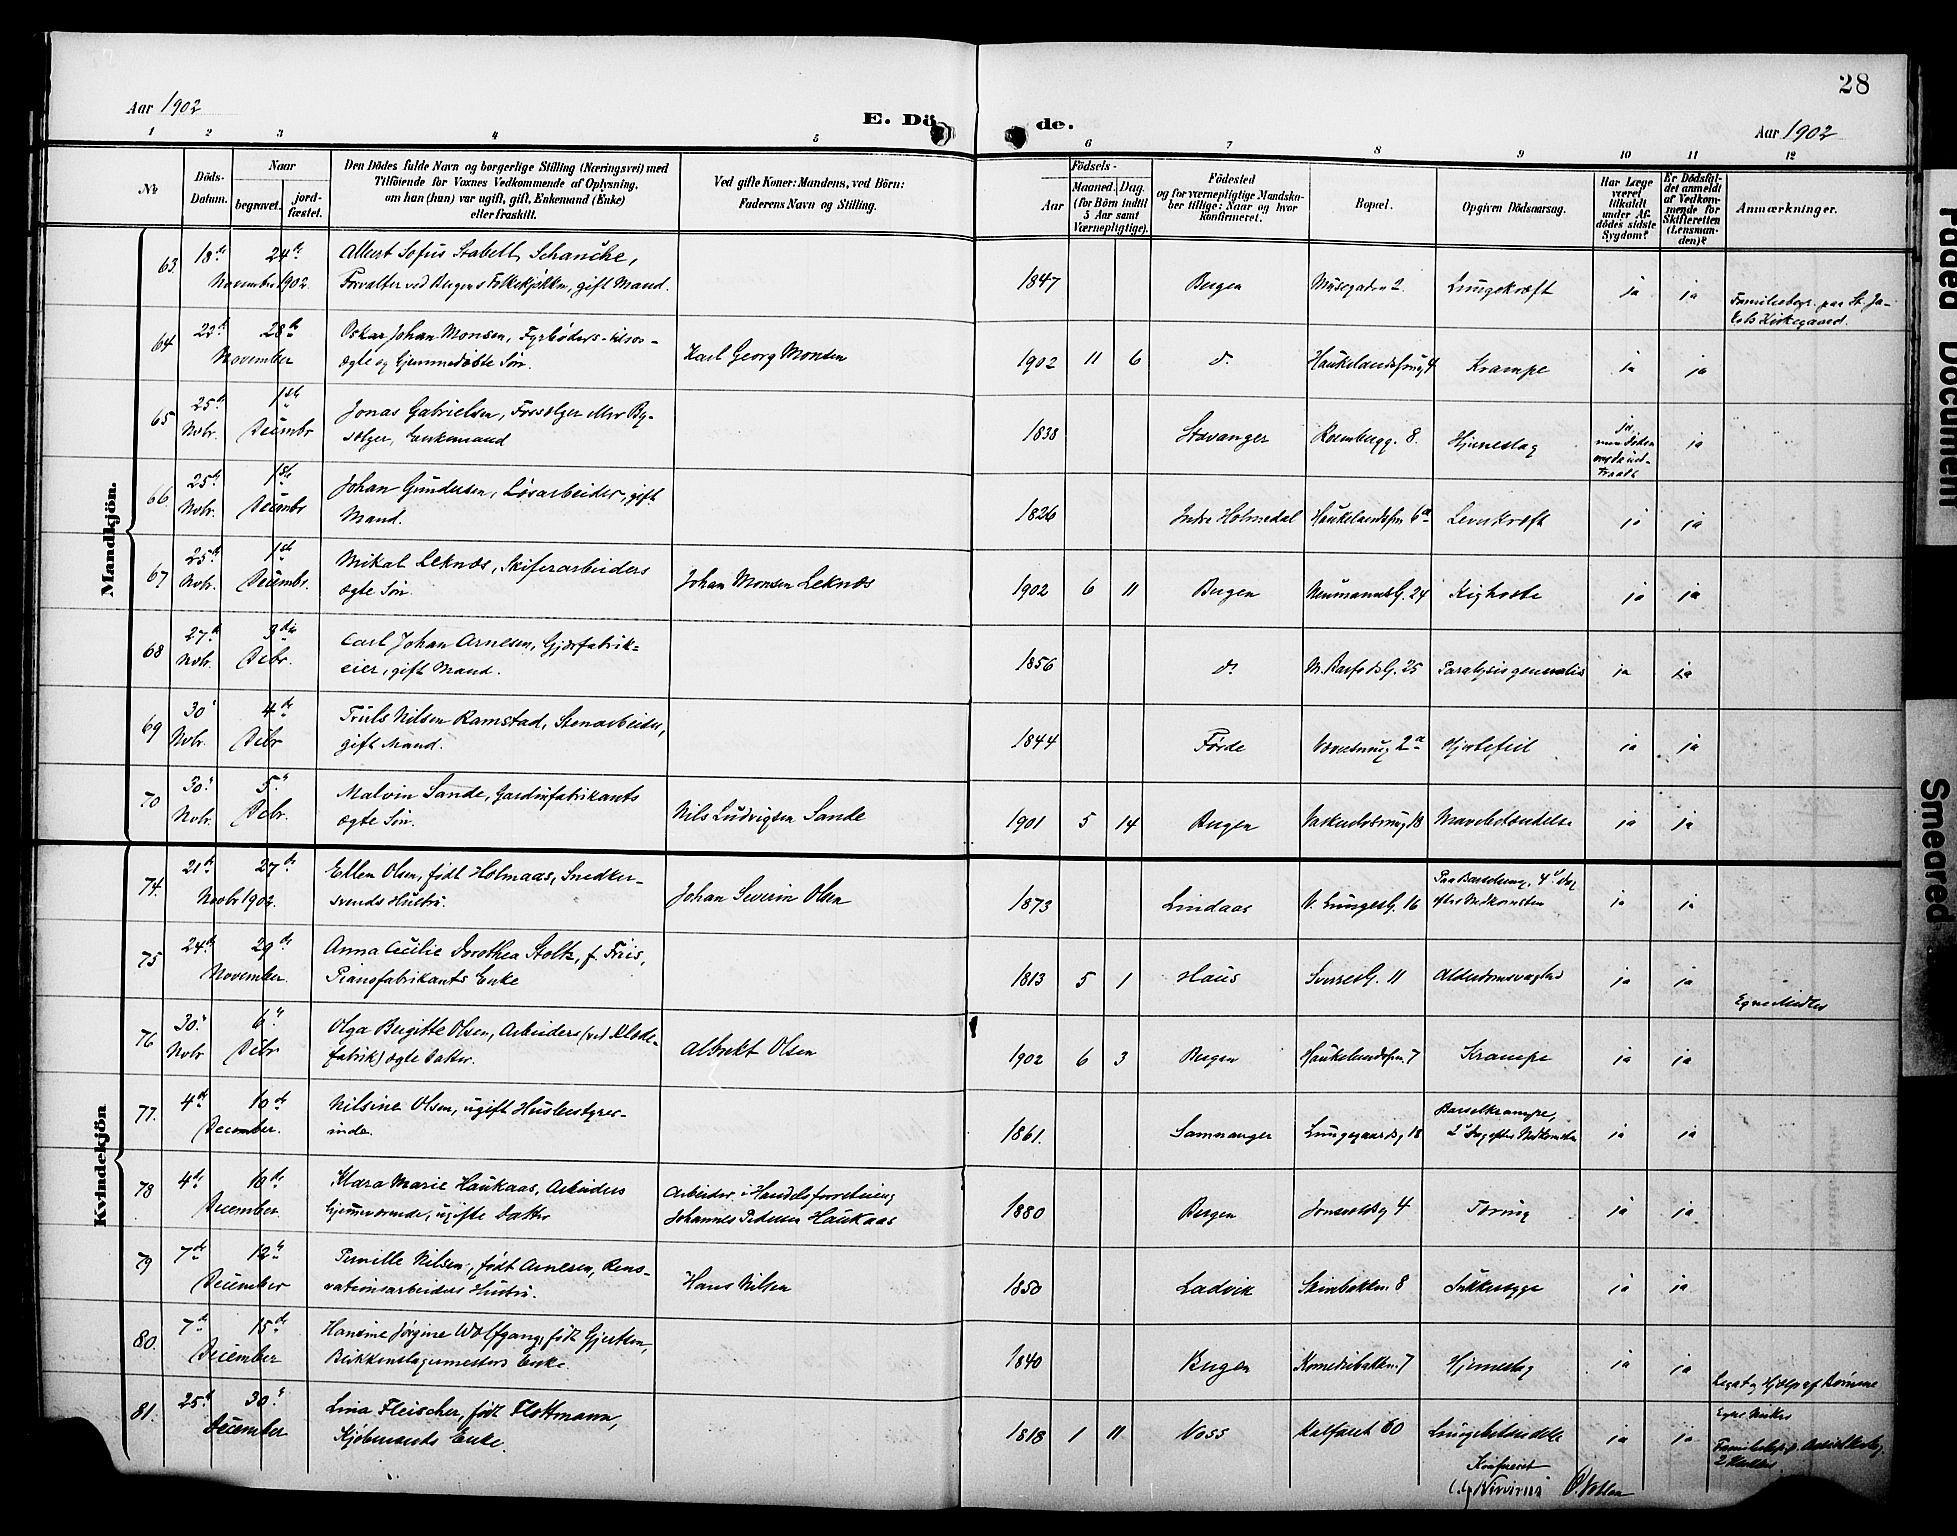 28
Aar 1902
E. Dö de.
Aar 1902
1 2 3 4 5 6 7 8 9 10 11 12
No
Döds-
Datum.
Naar
begravet.
jord-
fæstet.
Den Dödes fulde Navn og borgerlige Stilling (Næringsvei) med
Tilföiende for Voxnes Vedkommende af Oplysning,
om han (hun) var ugift, gift, Enkemand (Enke)
eller fraskilt.
Ved gifte Koner: Mandens, ved Börn:
Faderens Navn og Stilling.
Födsels-
Aar
Maaned. Dag.
(for Börn indtil
5 Aar samt
Værnepligtige).
Födested
og for værnepligtige Mandska-
ber tillige: Naar og hvor
konfirmeret.
Bopæl.
Opgiven Dödsaarsag.
Har Læge
været
tilkaldt
under Af-
dödes sidste
Sygdom?
Er Dödsfal-
det anmeldt
af Vedkom-
mende for
Skifteretten
(Lensman-
den)?
Anmærkninger.
Mandkjön.
63. 18de 24de Albert Sofus Stabell Schanche,
November 1902. Forvalter ved Bergens Folkekjøkken, gift Mand. 1847 Bergen Musegaden 2. Lungekræft ja ja
Familiebegr. paa St. Ja-
kobs Kirkegaard.
64 28de Oskar Johan Monsen, Fyrbøders
November ægte og hjemmedøbte Søn. Karl Georg Monsen 1902 11 6 do Krampe ja ja
65 25de 1ste Jonas Gabrielsen,
Novbr. Decembr Enkemand 1838 Stavanger Rosenbergg. 8. Hjerneslag ja
66 25de 1ste Johan Gundersen, Løsarbeider, gift
Novbr. Decembr Mand. 1826 Indre Holmedal Leverkræft ja ja
67 25de 1ste Mikal Leknæs, Skiferarbeiders
Novbr. Decembr. ægte Søn. Johan Monsen Leknæs 1902 6 11 Bergen Neumannsg. 24 Kighoste ja ja
68 27de 3die Carl Johan Arnesen, Gjærfabrik-
Novbr. Debr. eier, gift Mand. 1856 do 25 Paralysis generalis ja ja
69 30 4de Truls Nilsen Ramstad, Stenarbeider,
Novbr. Debr gift Mand. 1844 Førde Hjertefeil ja ja
70 30 5 Malvin Sande, Gardinfabrikants
Novbr. Debr. ægte Søn. Nils Ludvigsen Sande 1901 5 14 Bergen Mavebetændelse ja ja
Kvindekjön
74. 21de 27de Ellen Olsen, født Holmaas, Snedker-
Novbr 1902. svends Hustru. Johan Severin Olsen 1873 Lindaas V. Lungesg. 16 ja ja
75 24de 29de Anna Cecilie Dorothea Stoltz, f. Friis,
November. Pianofabrikants Enke 1813 5 1 Haus Sverresg. 11 ja ja
Egne Midler
76 30 6 Olga Birgitte Olsen, Arbeiders (ved Klæde-
Novbr Debr fabrik) ægte Datter. Albrekt Olsen 1902 6 3 Bergen 7 Krampe ja ja
77. 4de 10de Nilsine Olsen, ugift Husbestyrer-
December. inde. 1861. Samnanger Lungegaardsg 18 Barselkrampe,
2 Dag efter Nedkomsten ja ja
78 4de 10de Klara Marie Haukaas, Arbeiders
December. hjemmeværende, ugifte Datter Arbeider i Handelsforretning
Johannes Pedersen Haukaas 1880 Bergen 4 Tæring ja ja
79 7de 12 Pernille Nilsen, født Arnesen, Reno-
December vationsarbeiders Hustru. Hans Nilsen 1850 Ladvik Stenbakken 8 Sukkersyge ja ja
80. 7de 15de Hansine Jørgine Wolfgang, født Gjertsen,
December Blikkenslagermesters Enke. 1840 Bergen Komediebakken 7 Hjerneslag ja ja
Legat og Hjælp af Børnene
81. 25de 30 Lina Fleischer, født Flottmann,
December Kjøbmands Enke. 1818 1 11 Voss Kalfaret 60 Lungebetændelse ja ja
Egne Midler
Faded Document
Smeared